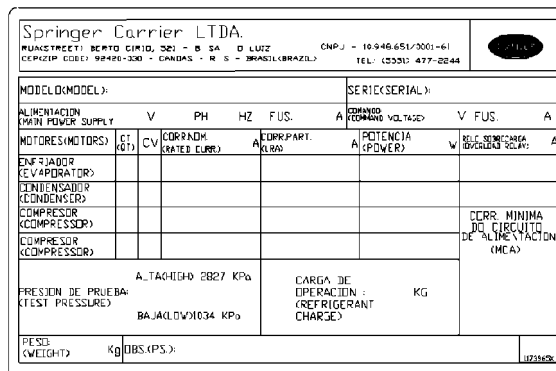 Springer Carrier LTDA.
RUA(STREET) BERTO CIRIO, 521 - B SA O LUIZ
CEP(ZIP CODE) 92420-030 - CANOAS - R S - BRASIL(BRAZIL)
CNPJ - 10.948.651/0001-61
TEL: (5551) 477-2244
MODELO(MODEL):
SERIE(SERIAL):
ALIMENTACION
(MAIN POWER SUPPLY
V PH HZ FUS. A
COMANDO
(COMMAND VOLTAGE) V FUS. A
MOTORES(MOTORS)
CT
(QT)
CV
CORR.NOM.
(RATED CURR.) A
CORR.PART.
(LRA) A
POTENCIA
(POWER) W
RELE SOBRECARGA
(OVERLOAD RELAY) A
ENFRIADOR
(EVAPORATOR)
CONDENSADOR
(CONDENSER)
COMPRESOR
(COMPRESSOR)
COMPRESOR
(COMPRESSOR)
CORR. MINIMA
DO CIRCUITO
DE ALIMENTACION
(MCA)
PRESION DE PRUEBA:
(TEST PRESSURE)
ALTA(HIGH) 2827 KPa
BAJA(LOW)1034 KPa
CARGA DE
OPERACION : KG
(REFRIGERANT
CHARGE)
PESO:
(WEIGHT) Kg
OBS.(PS.):